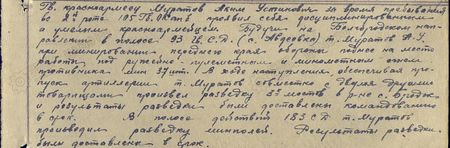 Тв. красноармеец Муратов Аким Устинович за время пребывания
во 2й роте 105 Тв. ОИ проявил себя дисциплинированным
и умелым красноармейцем. Будучи на Белгородском нап-
равлении в полосе 93 Гв. с.д. (с. Авдеевка) т. Муратов А.У.
при минировании переднего края обороны поднес на место
работы под ружейно-пулеметным и минометным огнем
противника мин 37 шт. В ходе наступления, обеспечивая про-
пуск артиллерии т. Муратов совместно с двумя другими
товарищами произвел разведку 5 мостов в р-не с.
и результаты разведки были доставлены командованию
в срок. В полосе действий 183 с.д. т. Муратов
производил разведку минполей. Результаты разведки
были доставлены в срок.